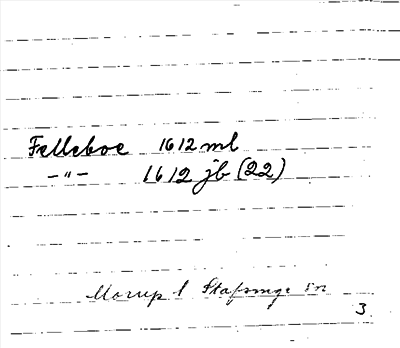 Felleboe 1612 ml
-"- 1612 jb (22)
Morup l Stafsinge sn
3